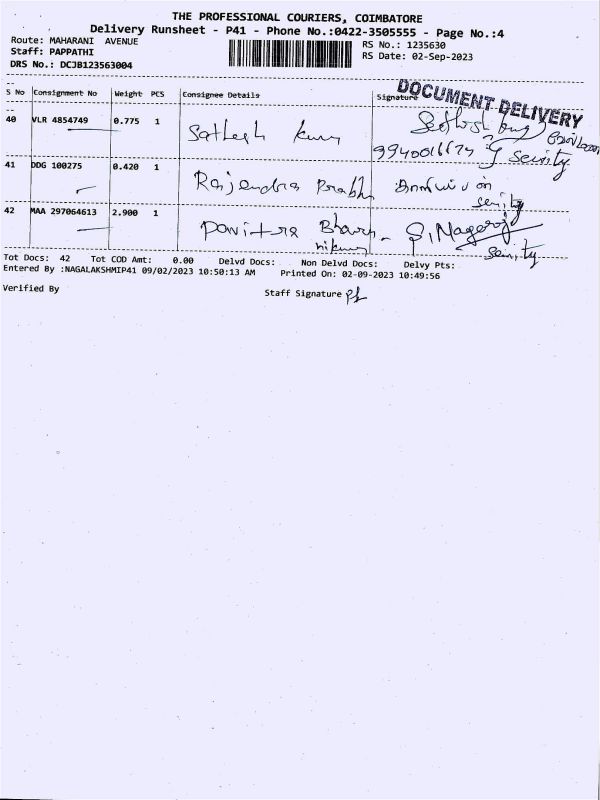 THE PROFESSIONAL COURIERS, COIMBATORE
Delivery Runsheet - P41 - Phone No.:0422-3505555 - Page No.:4
Route: MAHARANI AVENUE
RS No.: 1235630
Staff: PAPPATHI
RS Date: 02-Sep-2023
DRS No.: DCJB123563004
S No Consignment No Weight PCS Consignee Details Signature
DOCUMENT DELIVERY
40 VLR 4854749 0.775 1 Sathesh
41 DDG 100275 0.420 1 Rajendra Prabhu
42 MAA 297064613 2.900 1 Pavitra
S. Nagaraj
Tot Docs: 42 Tot COD Amt: 0.00 Delvd Docs: Non Delvd Docs: Delvy Pts:
Entered By :NAGALAKSHMIP41 09/02/2023 10:50:13 AM Printed On: 02-09-2023 10:49:56
Verified By Staff Signature